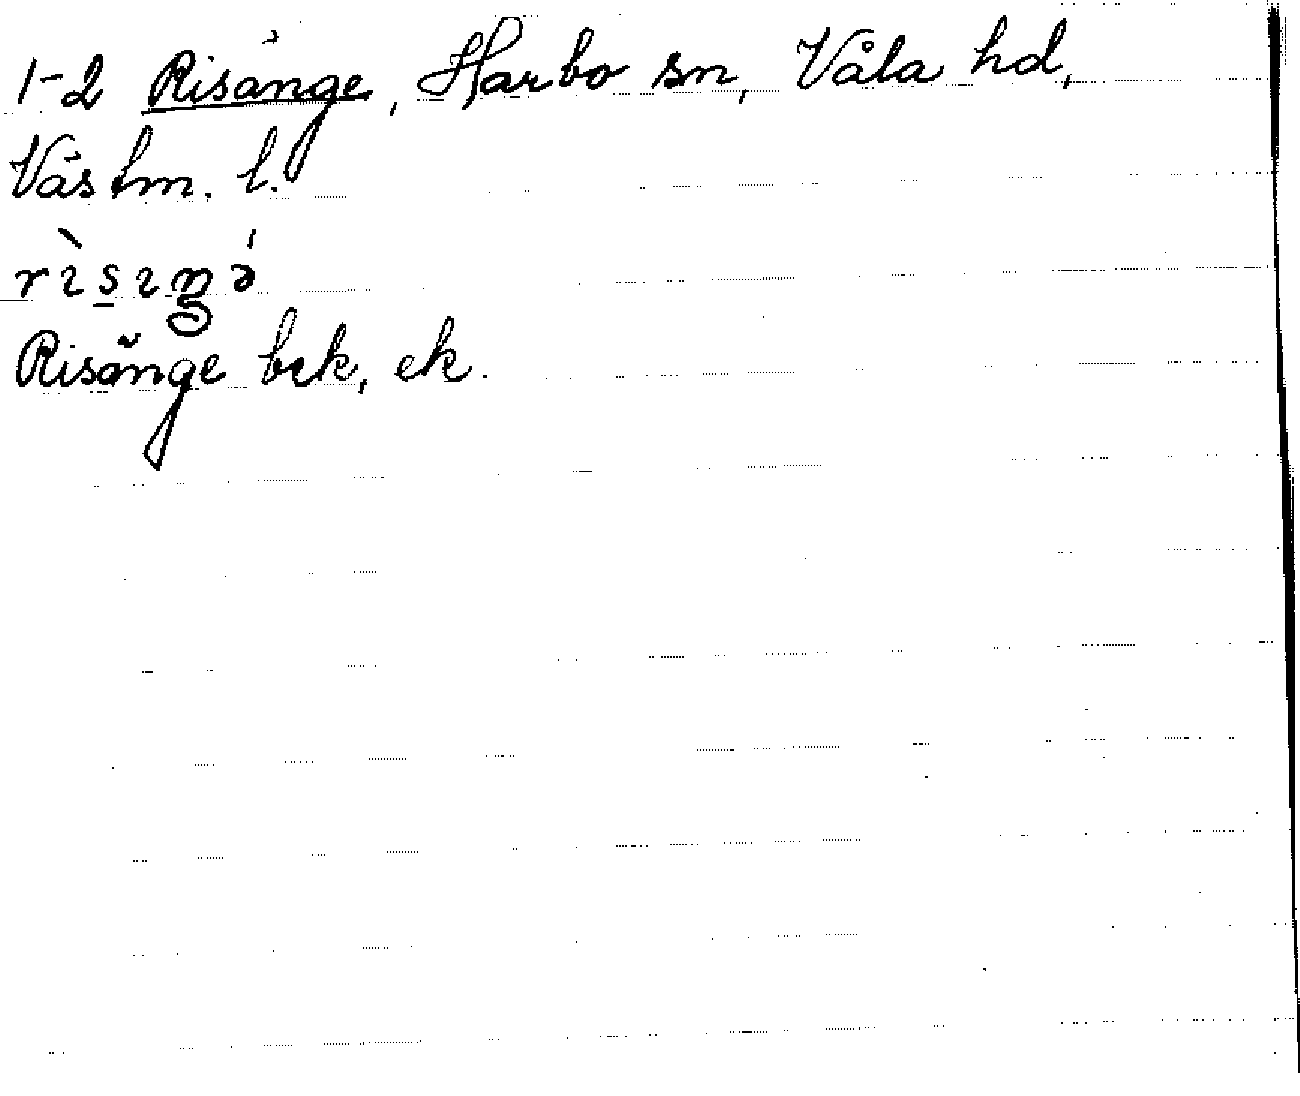 1-2 Risänge, Harbo sn, Våla hd,
Västm. l.
rìsıŋə́
Risänge bek, ek.